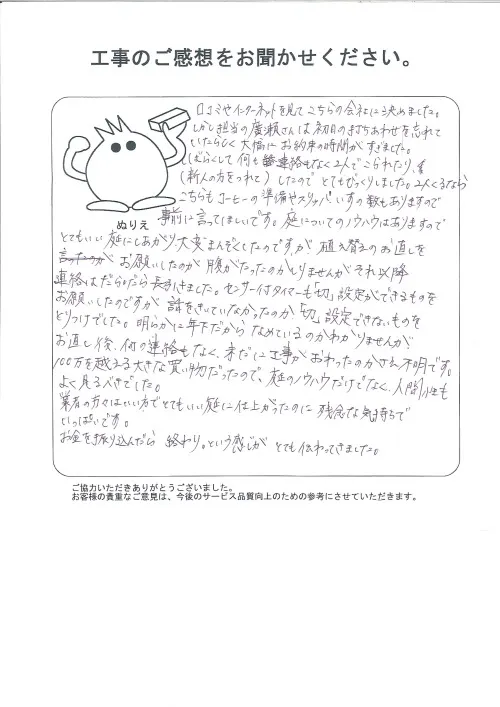 工事のご感想をお聞かせください。
口コミやインターネットを見てこちらの会社に決めました。
しかし担当の廣瀬さんは初日の打ちあわせを忘れて
いたらしく大幅にお約束の時間がすぎました。
しばらくして何も連絡もなく2人でこられたり、
(新人の方をつれて)したのでとてもびっくりしました。2人くるなら
こちらもコーヒーの準備やスリッパ、いすの数もありますので
ぬりえ
事前に言ってほしいです。庭についてのノウハウはありますので
とてもいい庭にしあがり大変まんぞくしたのですが植え替えのお直しを
お願いしたのが腹がたったのかしりませんがそれ以降
連絡はだらだら長引きました。センサー付タイマーも「切」設定ができるものを
お願いしたのですが話をきいていなかったのか「切」設定できないものを
とりつけでした。明らかに年下だからなめているのかわかりませんが
お直し後、何の連絡もなく、未だに工事がおわったのかさえ不明です。
100万を越える大きな買い物だったので、庭のノウハウだけでなく、人間性も
よく見るべきでした。
業者の方々はいい方でとてもいい庭に仕上がったのに残念な気持ちで
いっぱいです。
お金を振り込んだら終わり。という感じがとても伝わってきました。
ご協力いただきありがとうございました。
お客様の貴重なご意見は、今後のサービス品質向上のための参考にさせていただきます。